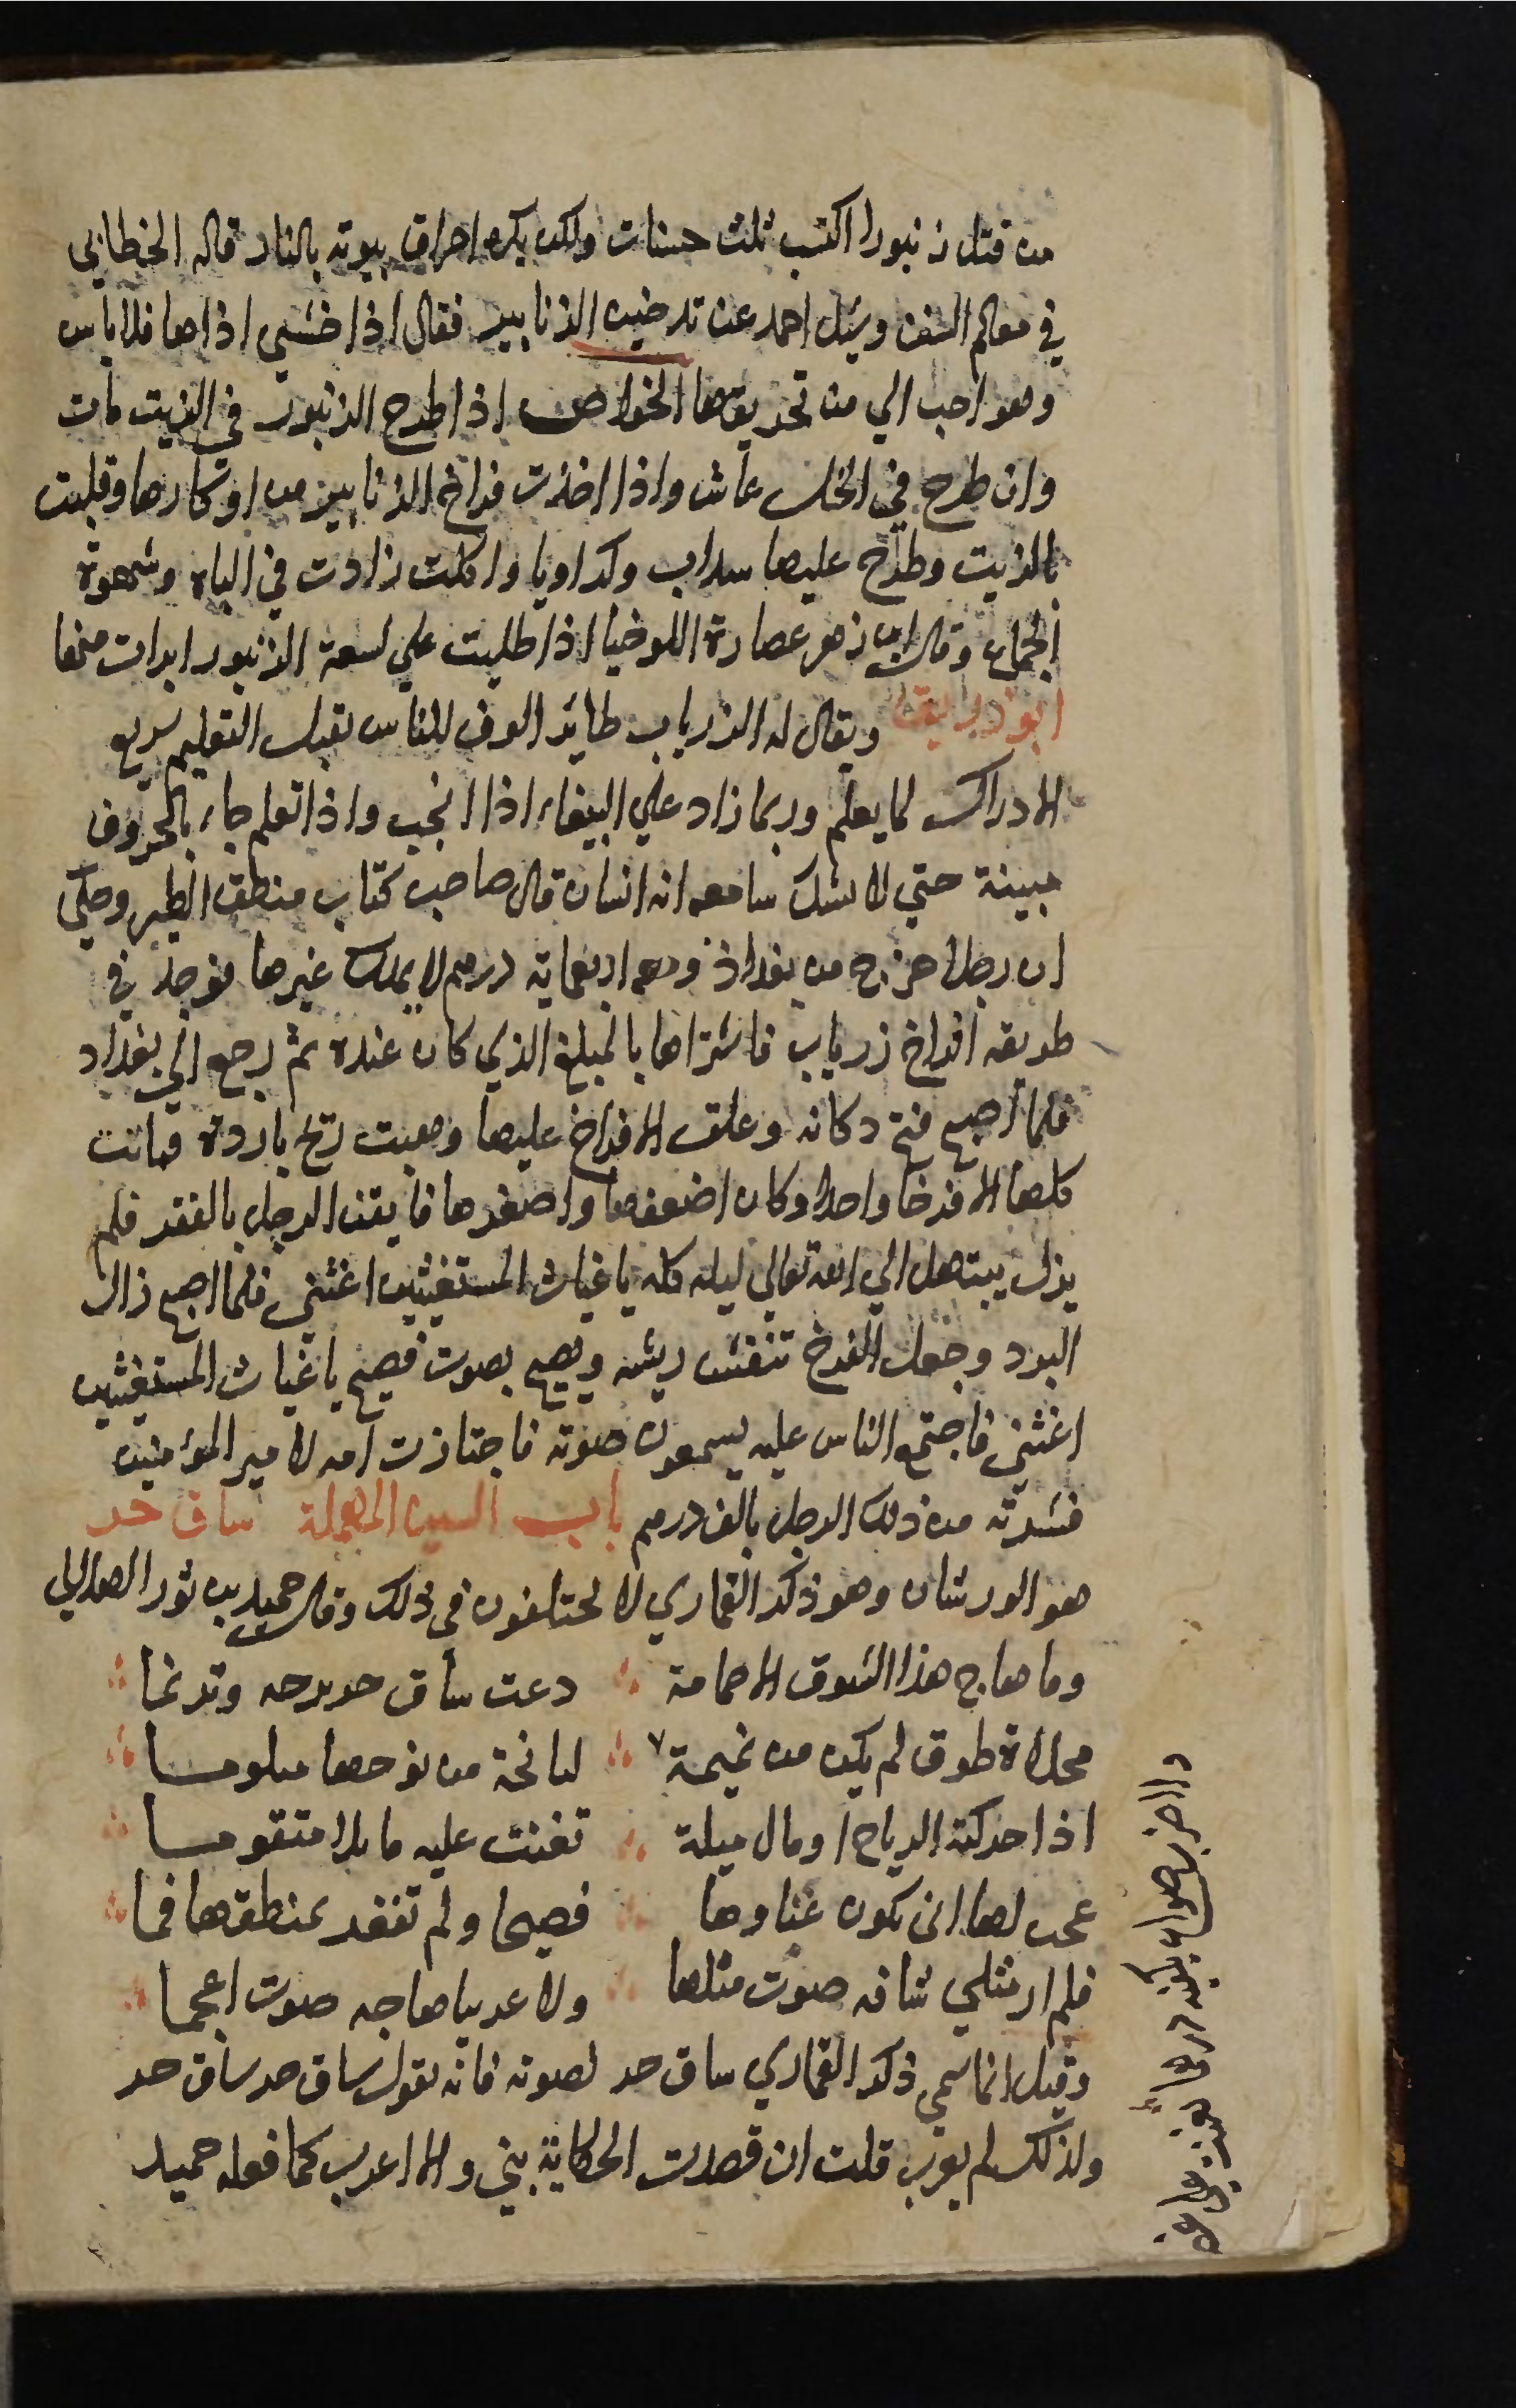 من قتل زنبورا اكتسب ثلث حسنات ولكن يكره احراق بيوته بالنار قاله الخطابي
في معالم السنن وسئل احمد عن تدخين الزنابير فقال اذا خشي اذاها فلا باس
وهو احب الي من تحريقها الخواص اذا طرح الزنبور في الزيت مات
وان طرح في الخل عاش واذا اخذت فراخ الزنابير من اوكارها وقليت
بالزيت وطرح عليها سداب وكراويا واكلت زادت في الباه وشهوة
الجماع وقال ابن زهر عصارة الملوخيا اذا طليت علي لسعة الزنبور ابرات منها
ابو زريق ويقال له الزرياب طائر الوف للناس يقبل التعليم سريع
الادراك لما يعلم وربما زاد علي الببغاء اذا انجب واذا تعلم جاء بالحروف
مبينة حتي لا يشك سامعه انه انسان قال صاحب كتاب منطق الطير وحكي
ان رجلا خرج من بغداذ ومعه اربعماية درهم لا يملك غيرها فوجد في
طريقه افراخ زرياب فاشتراها بالمبلغ الذي كان عنده ثم رجع الي بغداد
فلما اصبح فتح دكانه وعلق الافراخ عليها وهبت ريح باردة فماتت
كلها الا فرخا واحدا وكان اضعفها واصغرها فايقن الرجل بالفقر فلم
يزل يبتهل الي الله تعالي ليله كله يا غياث المستغيثين اغثني فلما اصبح زال
البرد وجعل الفرخ تنفش ريشه ويصيح بصوت فصيح يا غياث المستغيثين
اغثني فاجتمع الناس عليه يسمعون صوته فاجتازت امه لامير المؤمنين
فشرته من ذلك الرجل بالف درهم باب السين المهملة ساق حر
هو الورشان وهو ذكر القماري لا يختلفون في ذلك وقال حميد بن ثور الهلالي
وما هاج هذا الشوق الا حمامة دعت ساق حر برحه وترنما
محلاة طوق لم يكن من تميمة لنائحة من نوحها متلوما
اذا حركته الرياح او مال ميلة تغنت عليه مايلا متقوما
عجبت لها اني يكون غناوها فصيحا ولم تفغر بمنطقها فما
فلم ار مثلي شاقه صوت مثلها ولا عربيا هاجه صوت اعجما
وقيل انما سمي ذكر القماري ساق حر لصوته فانه يقول ساق حر ساق حر
ولذلك لم يعرب قلت ان قصدت الحكاية بني والا اعرب كما فعله حميد